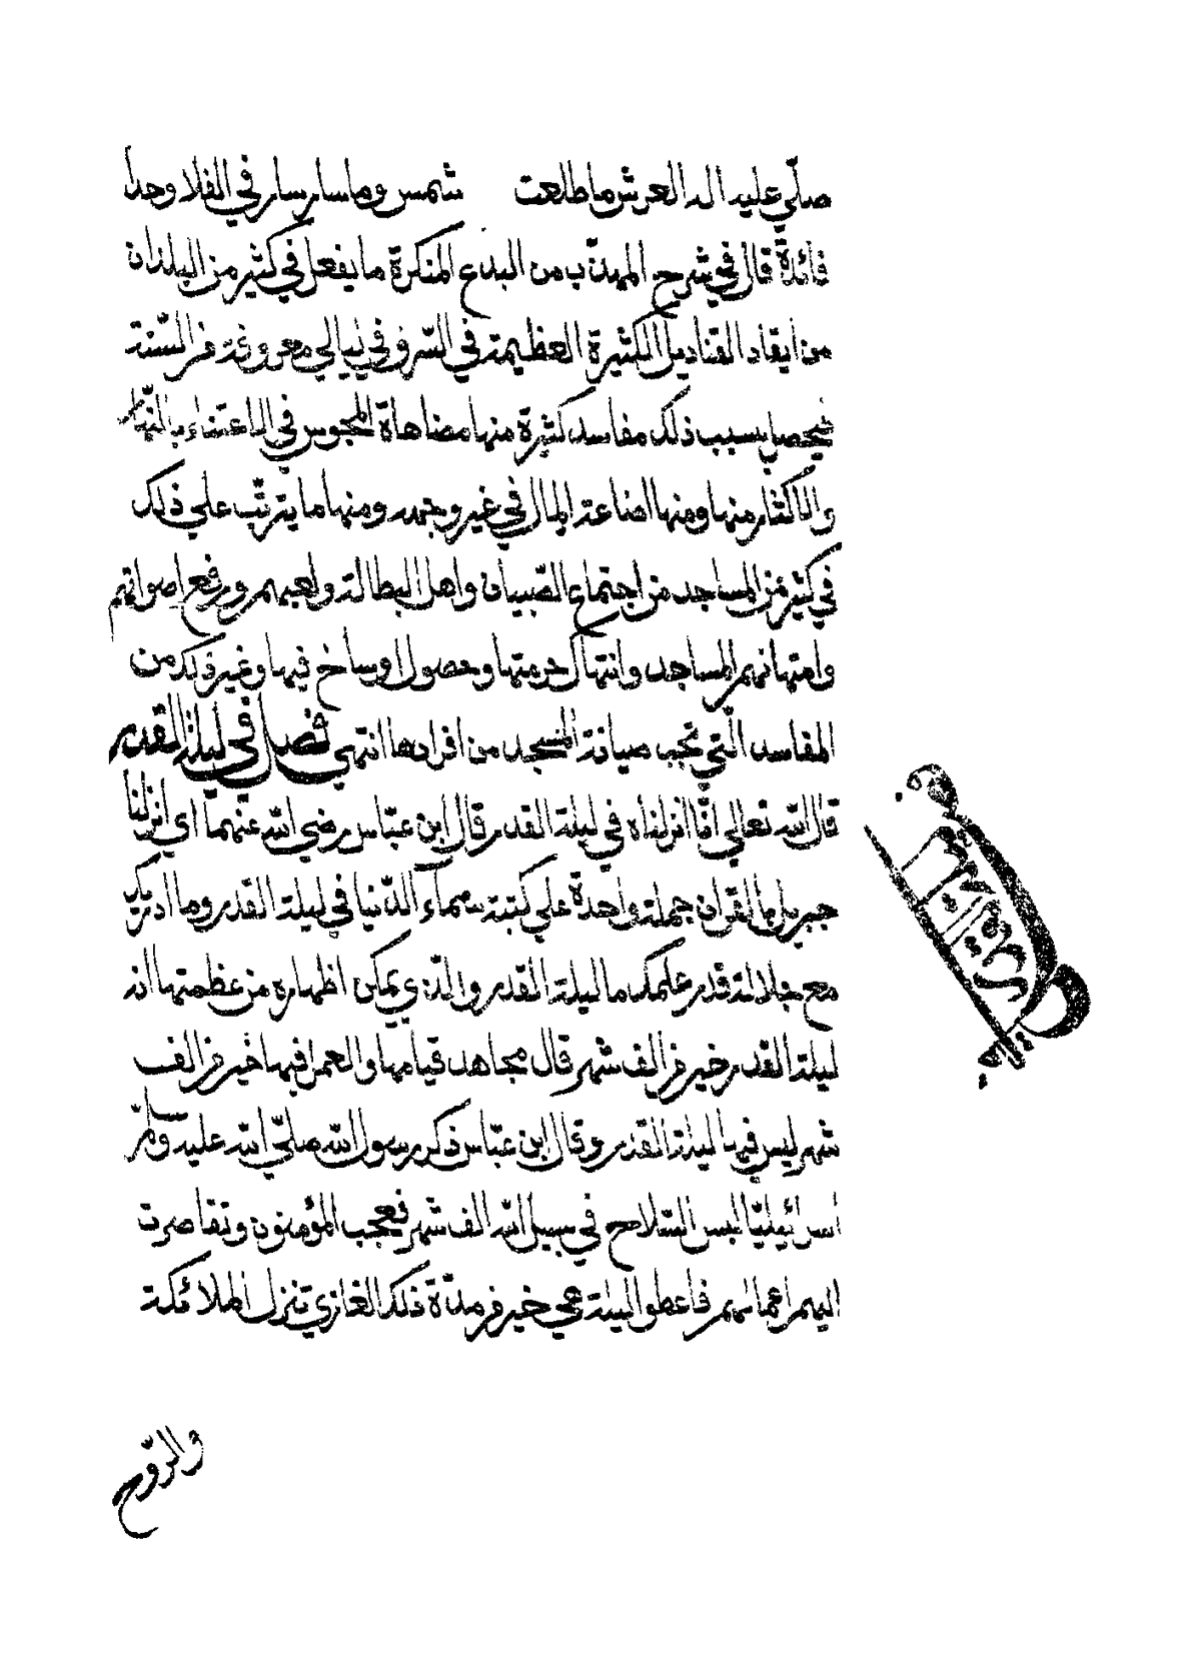 صلّي عليه اله العرش ما طلعت شمس وما سار سار في الفلا وحدا
فائدة قال في شرح المهذب من البدع المنكرة ما يفعل في كثير من البلدان
من ايقاد القناديل الكثيرة العظيمة في السرف في ليالي معروفة من السّنة
فيحصل بسبب ذلك مفاسد كثيرة منها مضاهاة المجوس في الاعتناء بالنّار
والاكثار منها ومنها اضاعة المال في غير وجهه ومنها ما يترتّب علي ذلك
في كثير من المساجد من اجتماع الصّبيان واهل البطالة ولعبهم ورفع اصواتهم
وامتهانهم المساجد وانتهاك حرمتها وحصول اوساخ فيها وغير ذلك من
المفاسد الّتي تجب صيانة المسجد من افرادها انتهي فصل في ليلة القدر
قال اللّه تعالي انّا انزلناه في ليلة القدر قال ابن عبّاس رضي اللّه عنهما اي انزلنا
جبريل بالقران جملة واحدة علي كتبة سماء الدّنيا في ليلة القدر وما ادريك
مع جلالة قدر علمك ما ليلة القدر والّذي يمكن اظهاره من عظمتها انه
ليلة القدر خير من الف شهر قال مجاهد قيامها والعمل فيها خير من الف
شهر ليس فيها ليلة القدر وقال ابن عبّاس ذكر رسول اللّه صلّي اللّه عليه وسلّم
اسرائيليّا لبس السّلاح في سبيل اللّه الف شهر فعجب المؤمنون وتقاصرت
اليهم اعمالهم فاعطوا ليلة هي خير من مدّة ذلك الغازي تنزل الملائكة
والرّوح